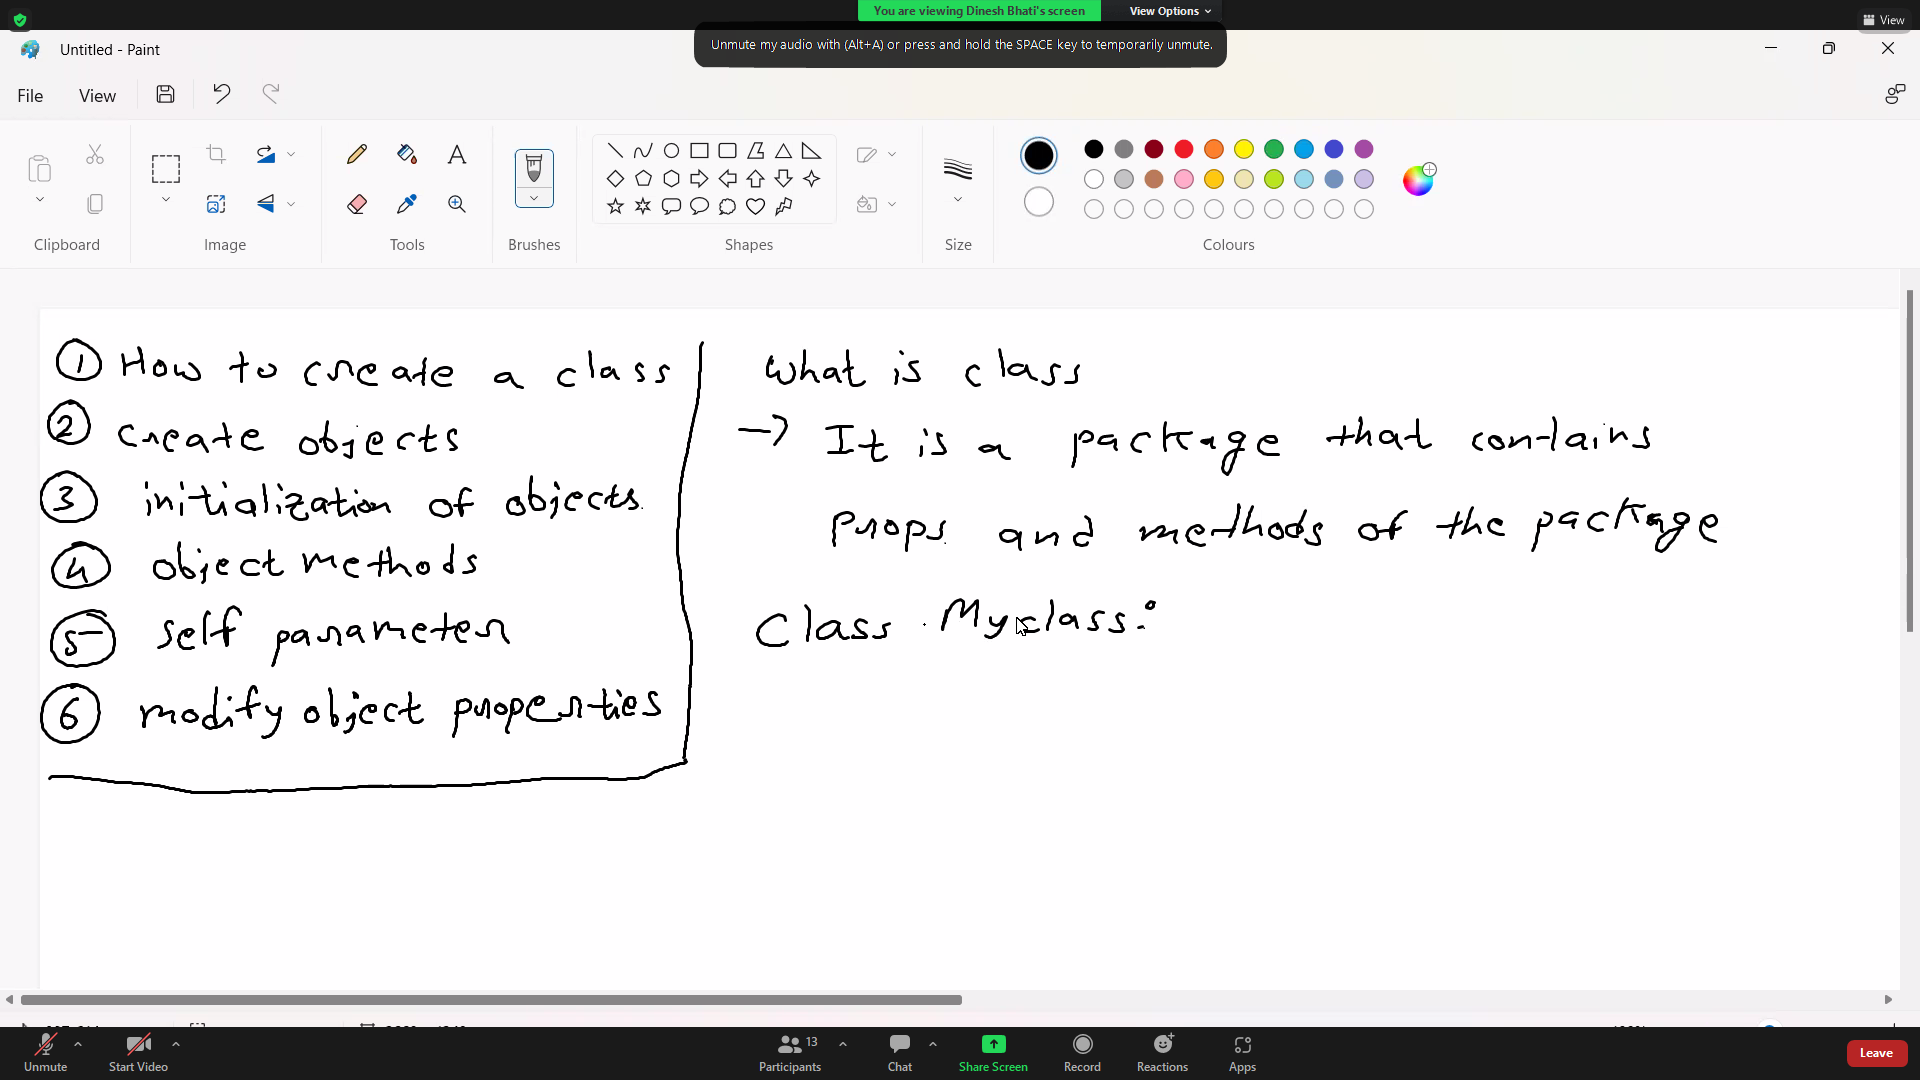 You are viewing Dinesh Bhati's screen
View Options
View
Untitled - Paint
Unmute my audio with (Alt+A) or press and hold the SPACE key to temporarily unmute.
File
View
Clipboard
Image
Tools
Brushes
Shapes
Size
Colours
① How to create a class
② create objects
③ initialization of objects.
④ object methods
⑤ self parameter
⑥ modify object properties
What is class
→ It is a package that contains
Props and methods of the package
Class Myclass:
Unmute
Start Video
13
Participants
Chat
Share Screen
Record
Reactions
Apps
Leave